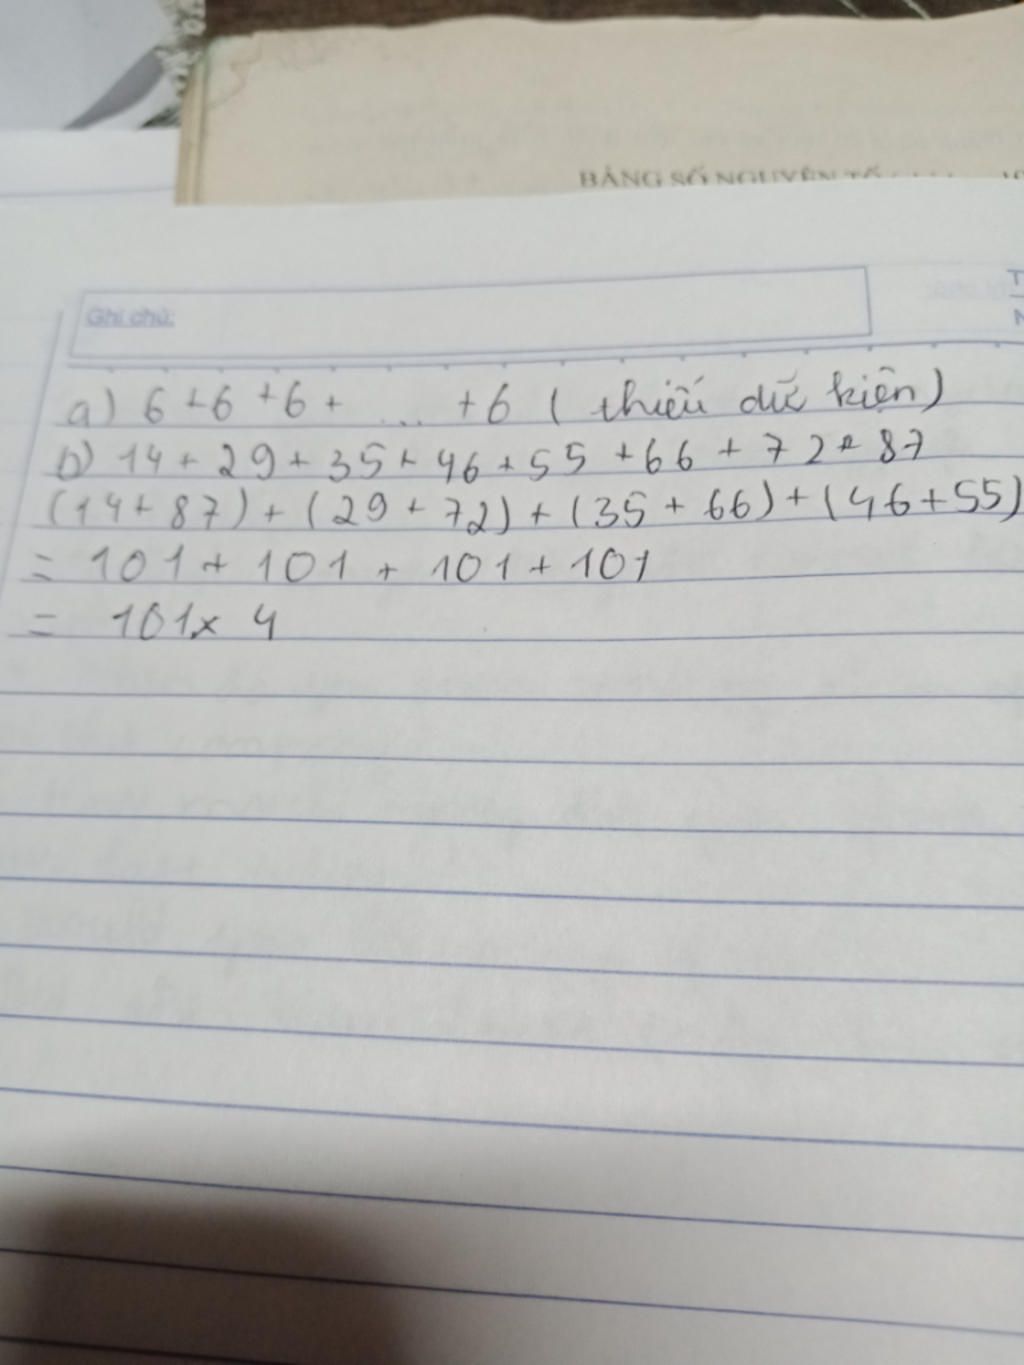 BẢNG SỐ NGUYÊN TỐ
Ghi chú:
a) 6 + 6 + 6 + ... + 6 ( thiếu dữ kiện)
b) 14 + 29 + 35 + 46 + 55 + 66 + 72 + 87
(14 + 87) + (29 + 72) + (35 + 66) + (46 + 55)
= 101 + 101 + 101 + 101
= 101 x 4